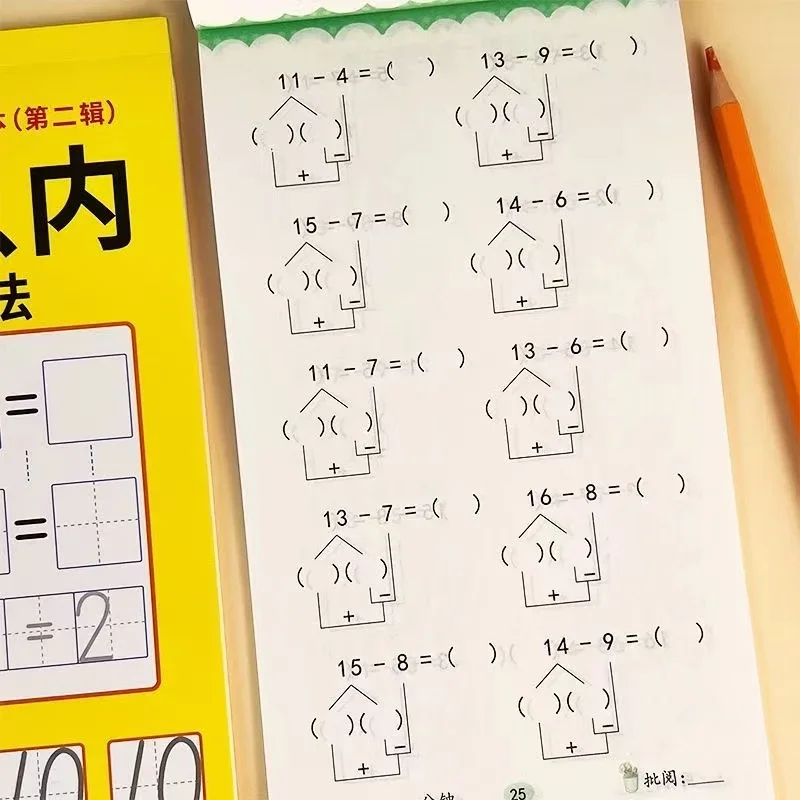 (第二辑)
内
法
=
=
= 2
10 10
11 - 4 = (  ) 13 - 9 = (  )
(  )(  ) (  )(  )
- -
+ +
15 - 7 = (  ) 14 - 6 = (  )
(  )(  ) (  )(  )
- -
+ +
11 - 7 = (  ) 13 - 6 = (  )
(  )(  ) (  )(  )
- -
+ +
13 - 7 = (  ) 16 - 8 = (  )
(  )(  ) (  )(  )
- -
+ +
15 - 8 = (  ) 14 - 9 = (  )
(  )(  ) (  )(  )
- -
+ +
分钟 25 批阅:____